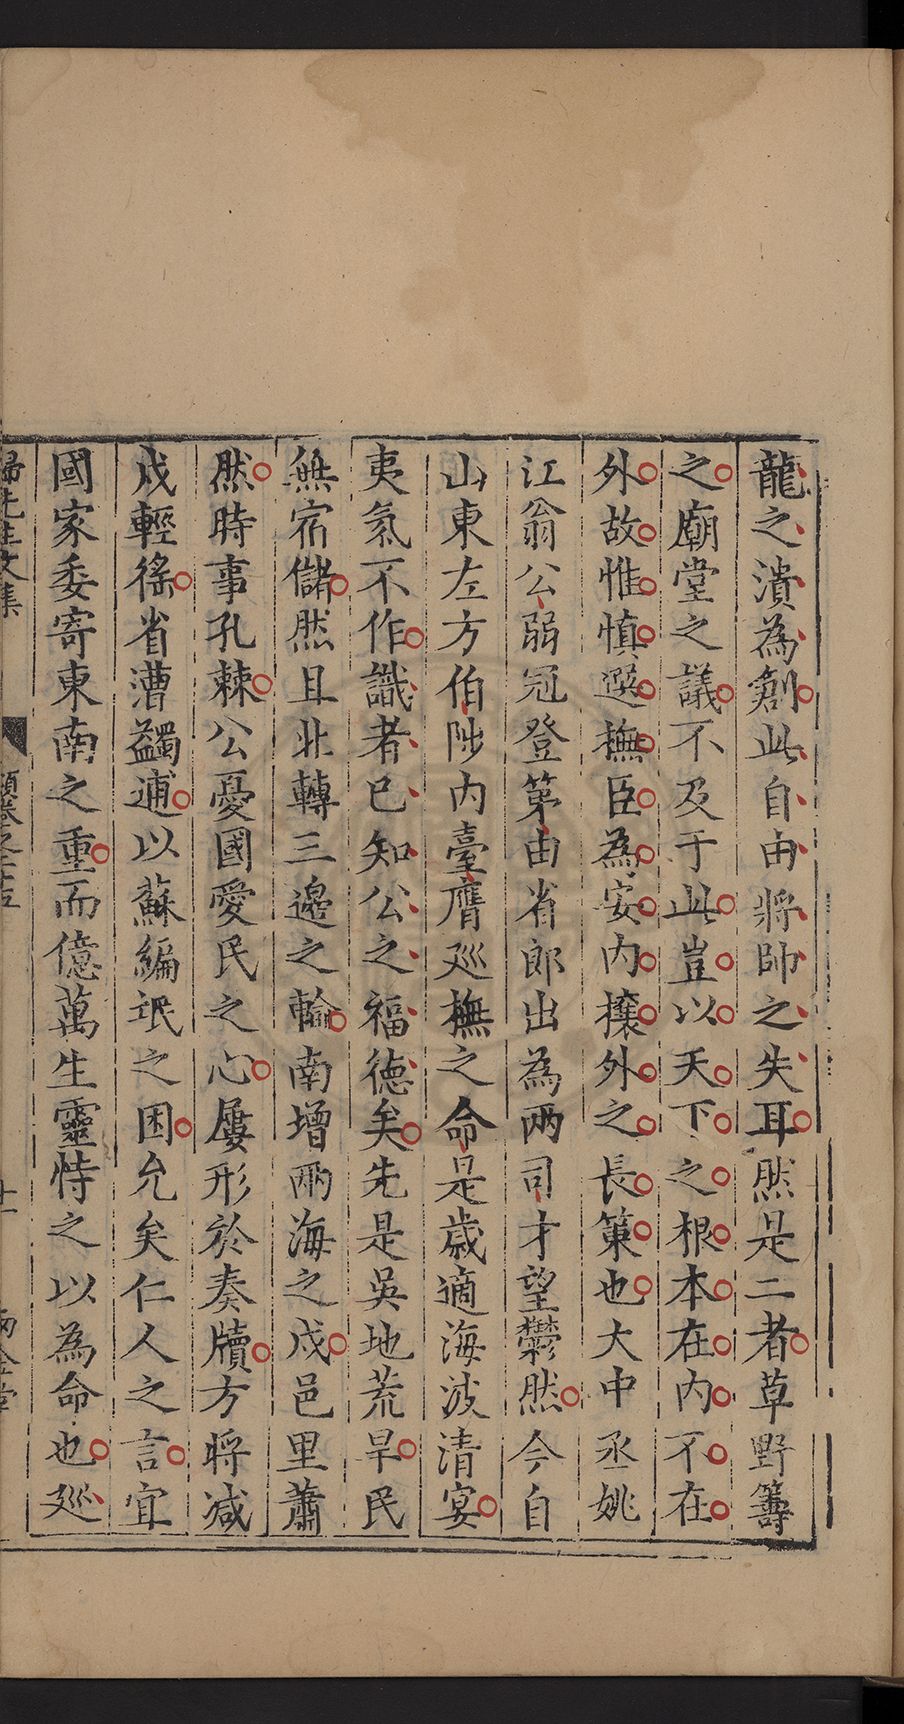 龍之潰為創此自由將帥之失耳然是二者草野籌
之廟堂之議不及于此豈以天下之根本在内不在
外故惟慎選撫臣為安内攘外之長策也大中丞姚
江翁公弱冠登第由省郎出為兩司才望鬱然今自
山東左方伯陟内臺膺廵撫之命是歲適海波清宴
夷氛不作識者已知公之福德矣先是吳地荒旱民
無宿儲然且北轉三邊之輸南增兩海之戍邑里蕭
然時事孔棘公憂國愛民之心屢形於奏牘方將减
戍輕徭省漕蠲逋以蘇編氓之困允矣仁人之言宜
國家委寄東南之重而億萬生靈恃之以為命也廵
歸先生文集